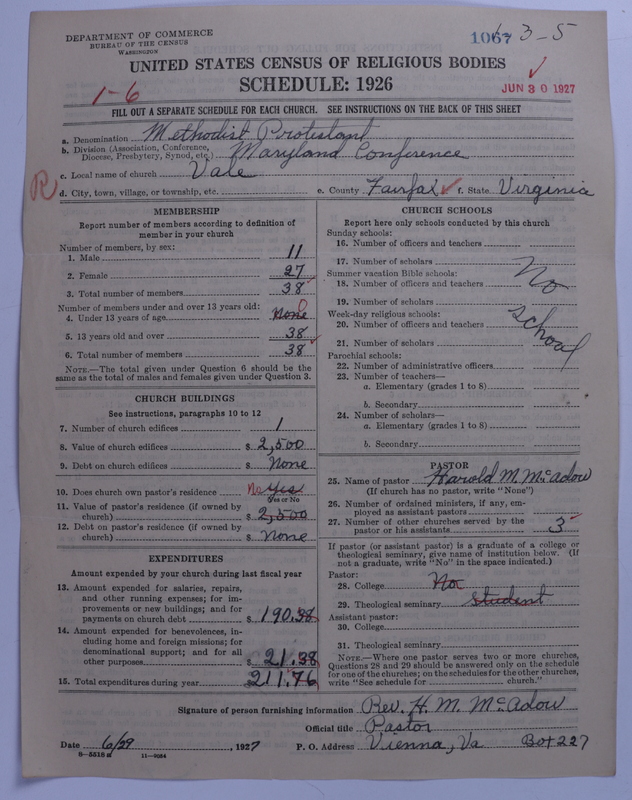 DEPARTMENT OF COMMERCE
BUREAU OF THE CENSUS
WASHINGTON
1067 3-5
UNITED STATES CENSUS OF RELIGIOUS BODIES
SCHEDULE: 1926
1-6
JUN 30 1927
FILL OUT A SEPARATE SCHEDULE FOR EACH CHURCH. SEE INSTRUCTIONS ON THE BACK OF THIS SHEET
a. Denomination Methodist Protestant
b. Division (Association, Conference, Diocese, Presbytery, Synod, etc.) Maryland Conference
c. Local name of church Vale
R
d. City, town, village, or township, etc. e. County Fairfax f. State Virginia
MEMBERSHIP
Report number of members according to definition of
member in your church
Number of members, by sex:
1. Male 11
2. Female 27
3. Total number of members 38
Number of members under and over 13 years old:
4. Under 13 years of age None 0
5. 13 years old and over 38
6. Total number of members 38
NOTE.—The total given under Question 6 should be the
same as the total of males and females given under Question 3.
CHURCH BUILDINGS
See instructions, paragraphs 10 to 12
7. Number of church edifices 1
8. Value of church edifices $ 2,500
9. Debt on church edifices $ None
10. Does church own pastor's residence No Yes
(Yes or No)
11. Value of pastor's residence (if owned by
church) $ 2,500
12. Debt on pastor's residence (if owned by
church) $ None
EXPENDITURES
Amount expended by your church during last fiscal year
13. Amount expended for salaries, repairs,
and other running expenses; for im-
provements or new buildings; and for
payments on church debt $ 190.38
14. Amount expended for benevolences, in-
cluding home and foreign missions; for
denominational support; and for all
other purposes $ 21.38
15. Total expenditures during year $ 211.76
CHURCH SCHOOLS
Report here only schools conducted by this church
Sunday schools:
16. Number of officers and teachers
17. Number of scholars
Summer vacation Bible schools:
18. Number of officers and teachers
19. Number of scholars
Week-day religious schools:
20. Number of officers and teachers
21. Number of scholars
No
School
Parochial schools:
22. Number of administrative officers
23. Number of teachers—
a. Elementary (grades 1 to 8)
b. Secondary
24. Number of scholars—
a. Elementary (grades 1 to 8)
b. Secondary
PASTOR
25. Name of pastor Harold M. McAdow
(If church has no pastor, write "None")
26. Number of ordained ministers, if any, em-
ployed as assistant pastors
27. Number of other churches served by the
pastor or his assistants 3
If pastor (or assistant pastor) is a graduate of a college or
theological seminary, give name of institution below. (If
not a graduate, write "No" in the space indicated.)
Pastor:
28. College No
29. Theological seminary student
Assistant pastor:
30. College
31. Theological seminary
NOTE.—Where one pastor serves two or more churches,
Questions 28 and 29 should be answered only on the schedule
for one of the churches; on the schedules for the other churches,
write "See schedule for church."
Signature of person furnishing information Rev. H. M. McAdow
Official title Pastor
Date 6/29, 1927 P. O. Address Vienna, Va Box 227
8—5518a 11—9084